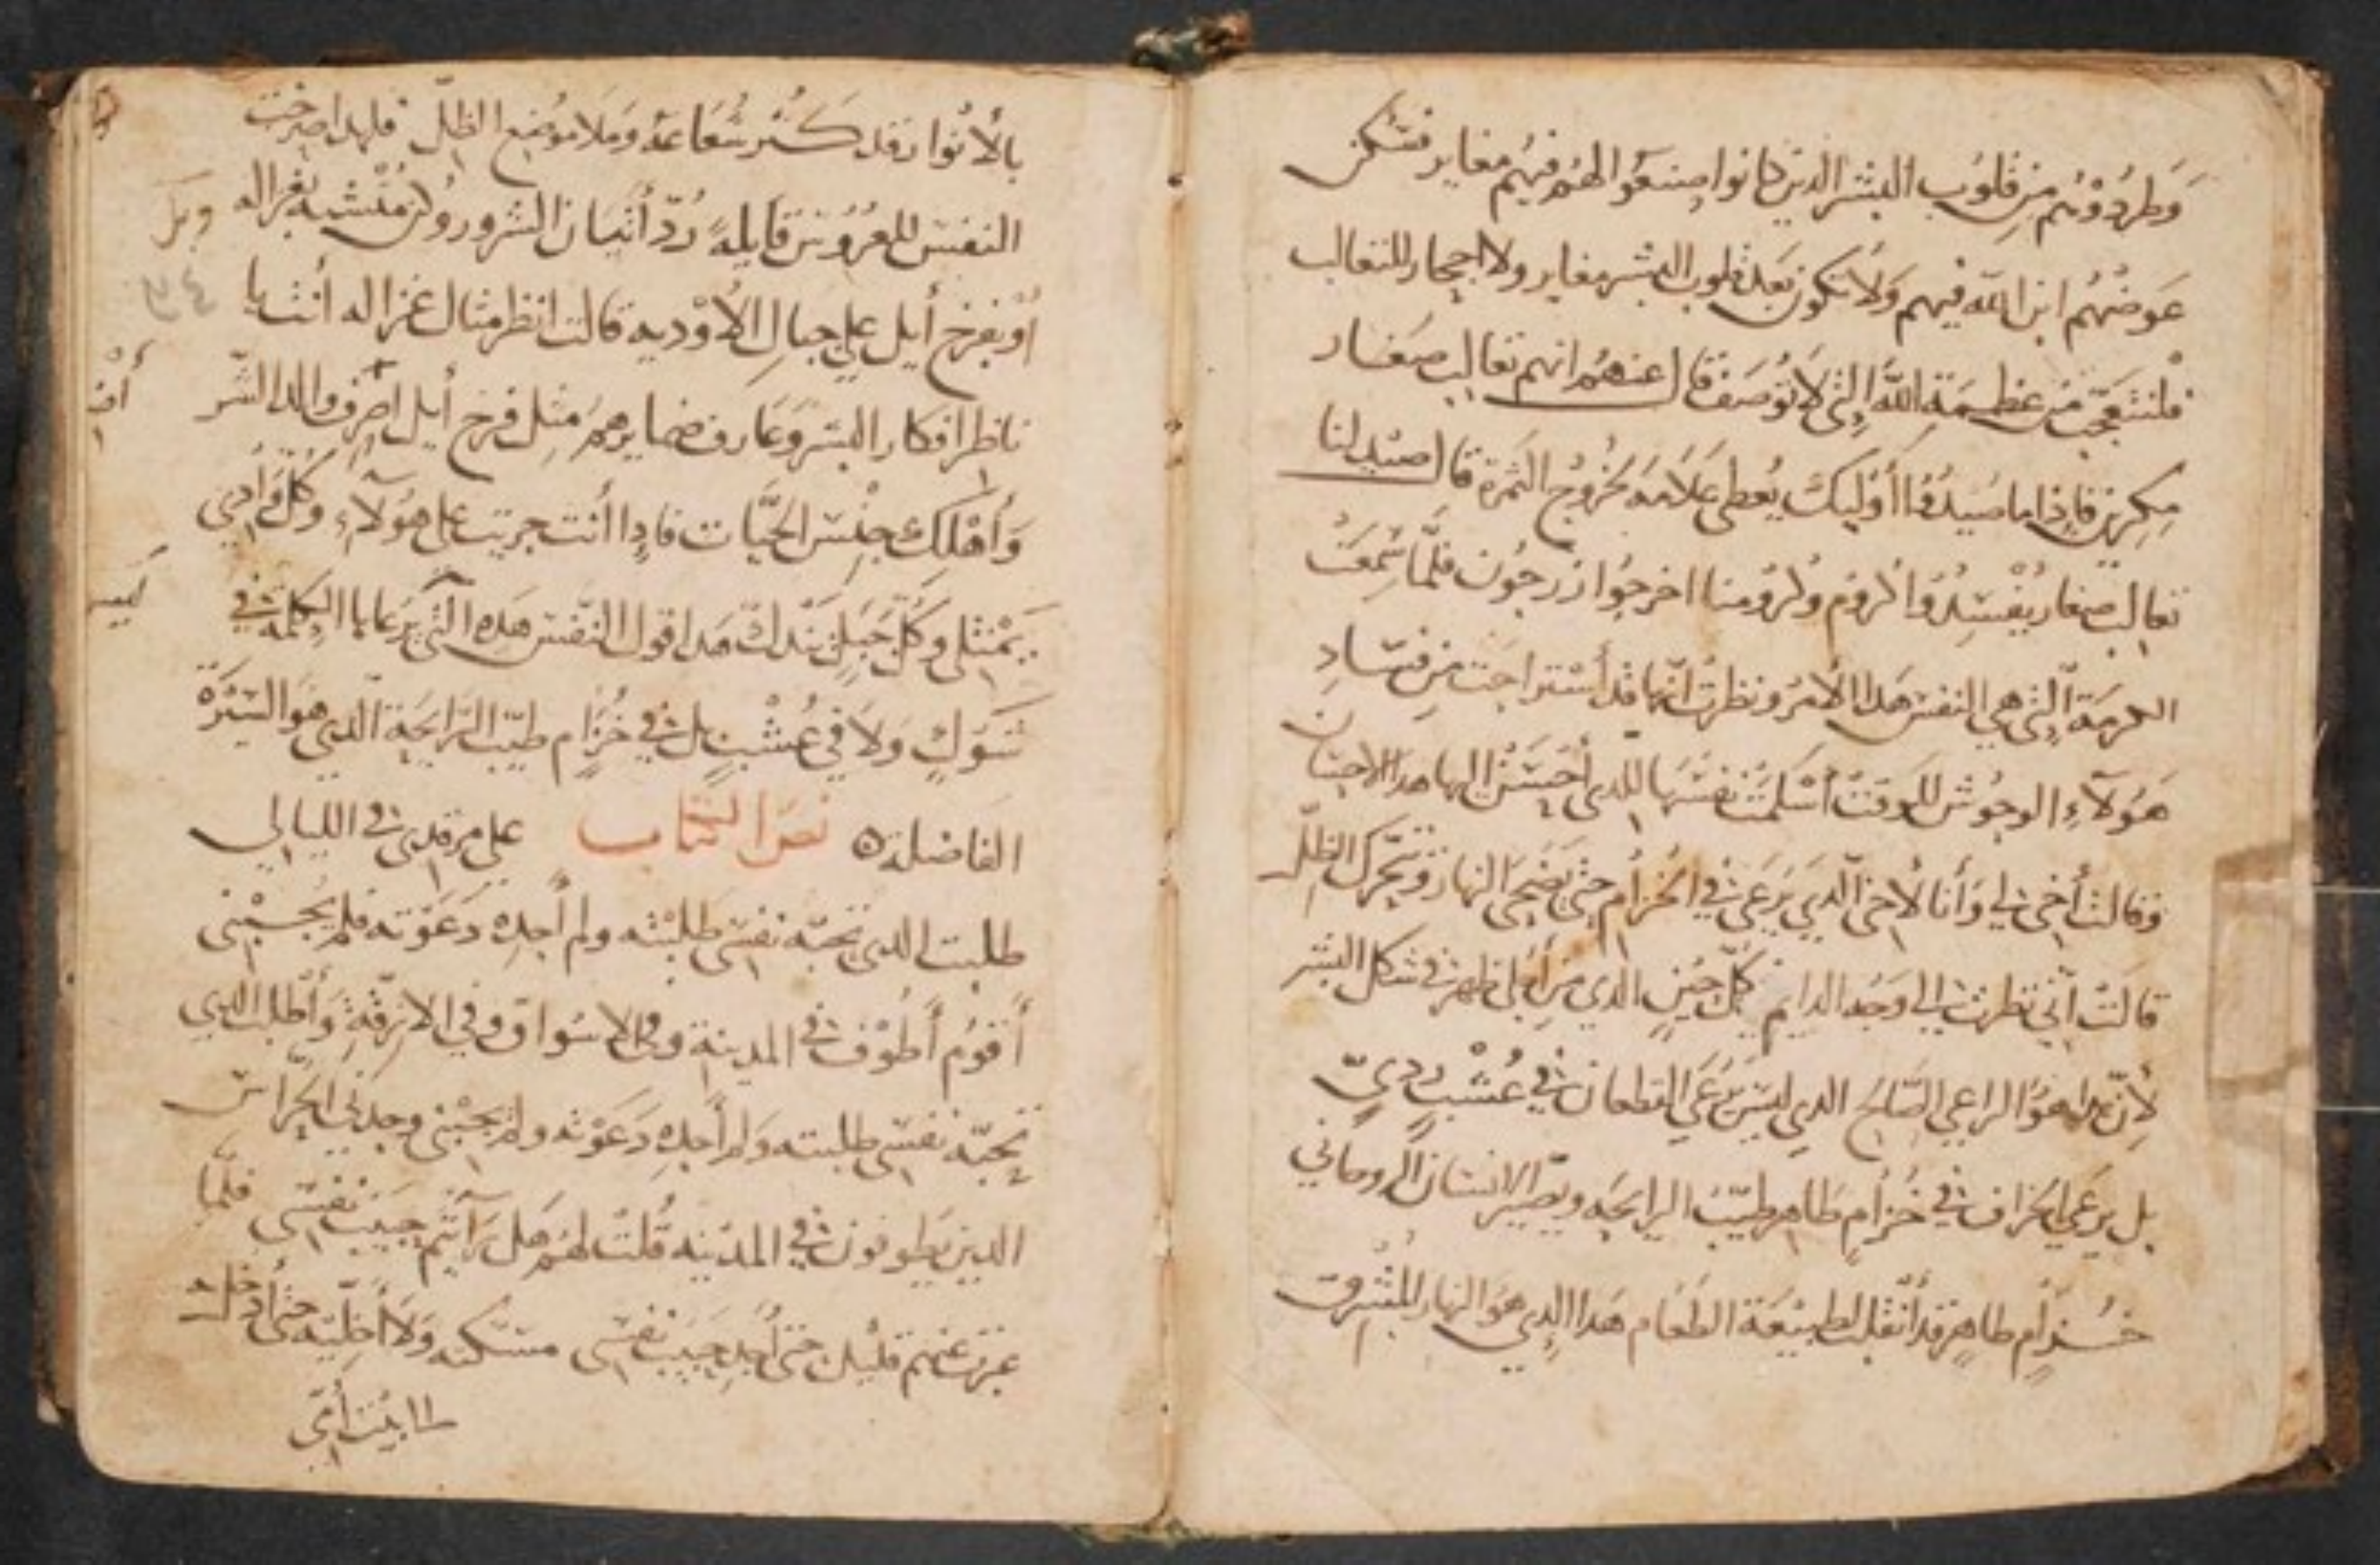 وَطردُوهُم مِن قلوُب البشر الدين كانوا صنعَوُا لهُم فيهُم مغاير فتسكن
عَوضهُم ابن الله فيهم وَلا تكون بَعد قلوب البشر مغاير ولا اجحار للثعالب
فلنتعجّب من عظيمَة الله التى لا تُوصَف قال عنهُم انهم تعالب صغار
مكرين فاذا ما صُيدُوا أوليك يُعطى عَلامَه بخُروُج الثمرة قال اصيد لنا
تعالب صغار يُفسِدُوا كروُم وكروُمنا اخرجُوا زرجون فلمّا سَمِعَت
الكرمَة التى هي النفس هَدا الامرُ ونظرت انّها قد أستراحَت من فسَادِ
هَوُلآءِ الوحُوش للوَقت أسْلمَت نفسَهَا للدى أحسَن اليها هدا الاحسَان
وقالت أخى لي وَأنا لأخى الّدي يَرعَى في الخُزام حتى يَضحى النهار ويتحَرك الظلّ
قالَت انّي نظرت الى وَجه الدايم كلّ حين الدي من أجلى ظهر في شكل البشر
لأنّ هدا هوَ الراعي الصَالح الدي ليسَ يَرعَى القطعان في عُشب رديّ
بل يرعَي الخراف في خُزام طاهر طيّبَ الرايحَه ويصَير الانسان الروحاني
خُزام طاهر قد أنتقلت لطبيعَة الطعَام هَدا الدي هوَ النهار المُشرق
بالأنوار قد كثر شُعَاعَهُ وَملا موُضِع الظلّ فلهدا صرخت
النفسَ للعرُوس قايلةً رُدّ أتيان الشرور وكن مُتشبه بغزاله
اوُ بفرخ أيل على جبال الأوْديه قالت انظر مثال غزاله أنت يا
ناظر افكار البشر وَعَارف ضمايرهمَ مثِل فرخ أيل اصرف والد الشر
وَأهْلك جنْسَ الحَيّات فادا أنت جريت على هوُلآءِ وَكُلّ وَادِي
يَمْتلى وكُلّ جَبَل يَندك هَدا قول النّفس هَدِه الّتى يرعَاها الكلمَة في
شوَكٍ وَلا في عُشْبٍ بل في خُزام طيّب الرَايحَة الّدى هوَ السيْرَةُ
الفاضلة ه نصَ الكتاب على مرقدى في الليالي
طلبت الدى تحبّه نفسى طلبْته ولم أجدِه دَعَوته فلم يجبْنى
أقومُ أطوْف في المدينة وفي الاسْواق وفي الازقّة وَأطلب الدي
تحبّه نفسى طلبته وَلم أجدِه دَعَوْته ولم يجبْنى وجدني الحُراس
الدين يَطوفون في المدَينه قُلت لهُم هَل رَآيتُم حَبيب نفسى فلمّا
عبرت عنهم قليل حتى أجد حَبيب نفسى مسَكته وَلا أخليّه حتى أدخله
الى بيت أمّى